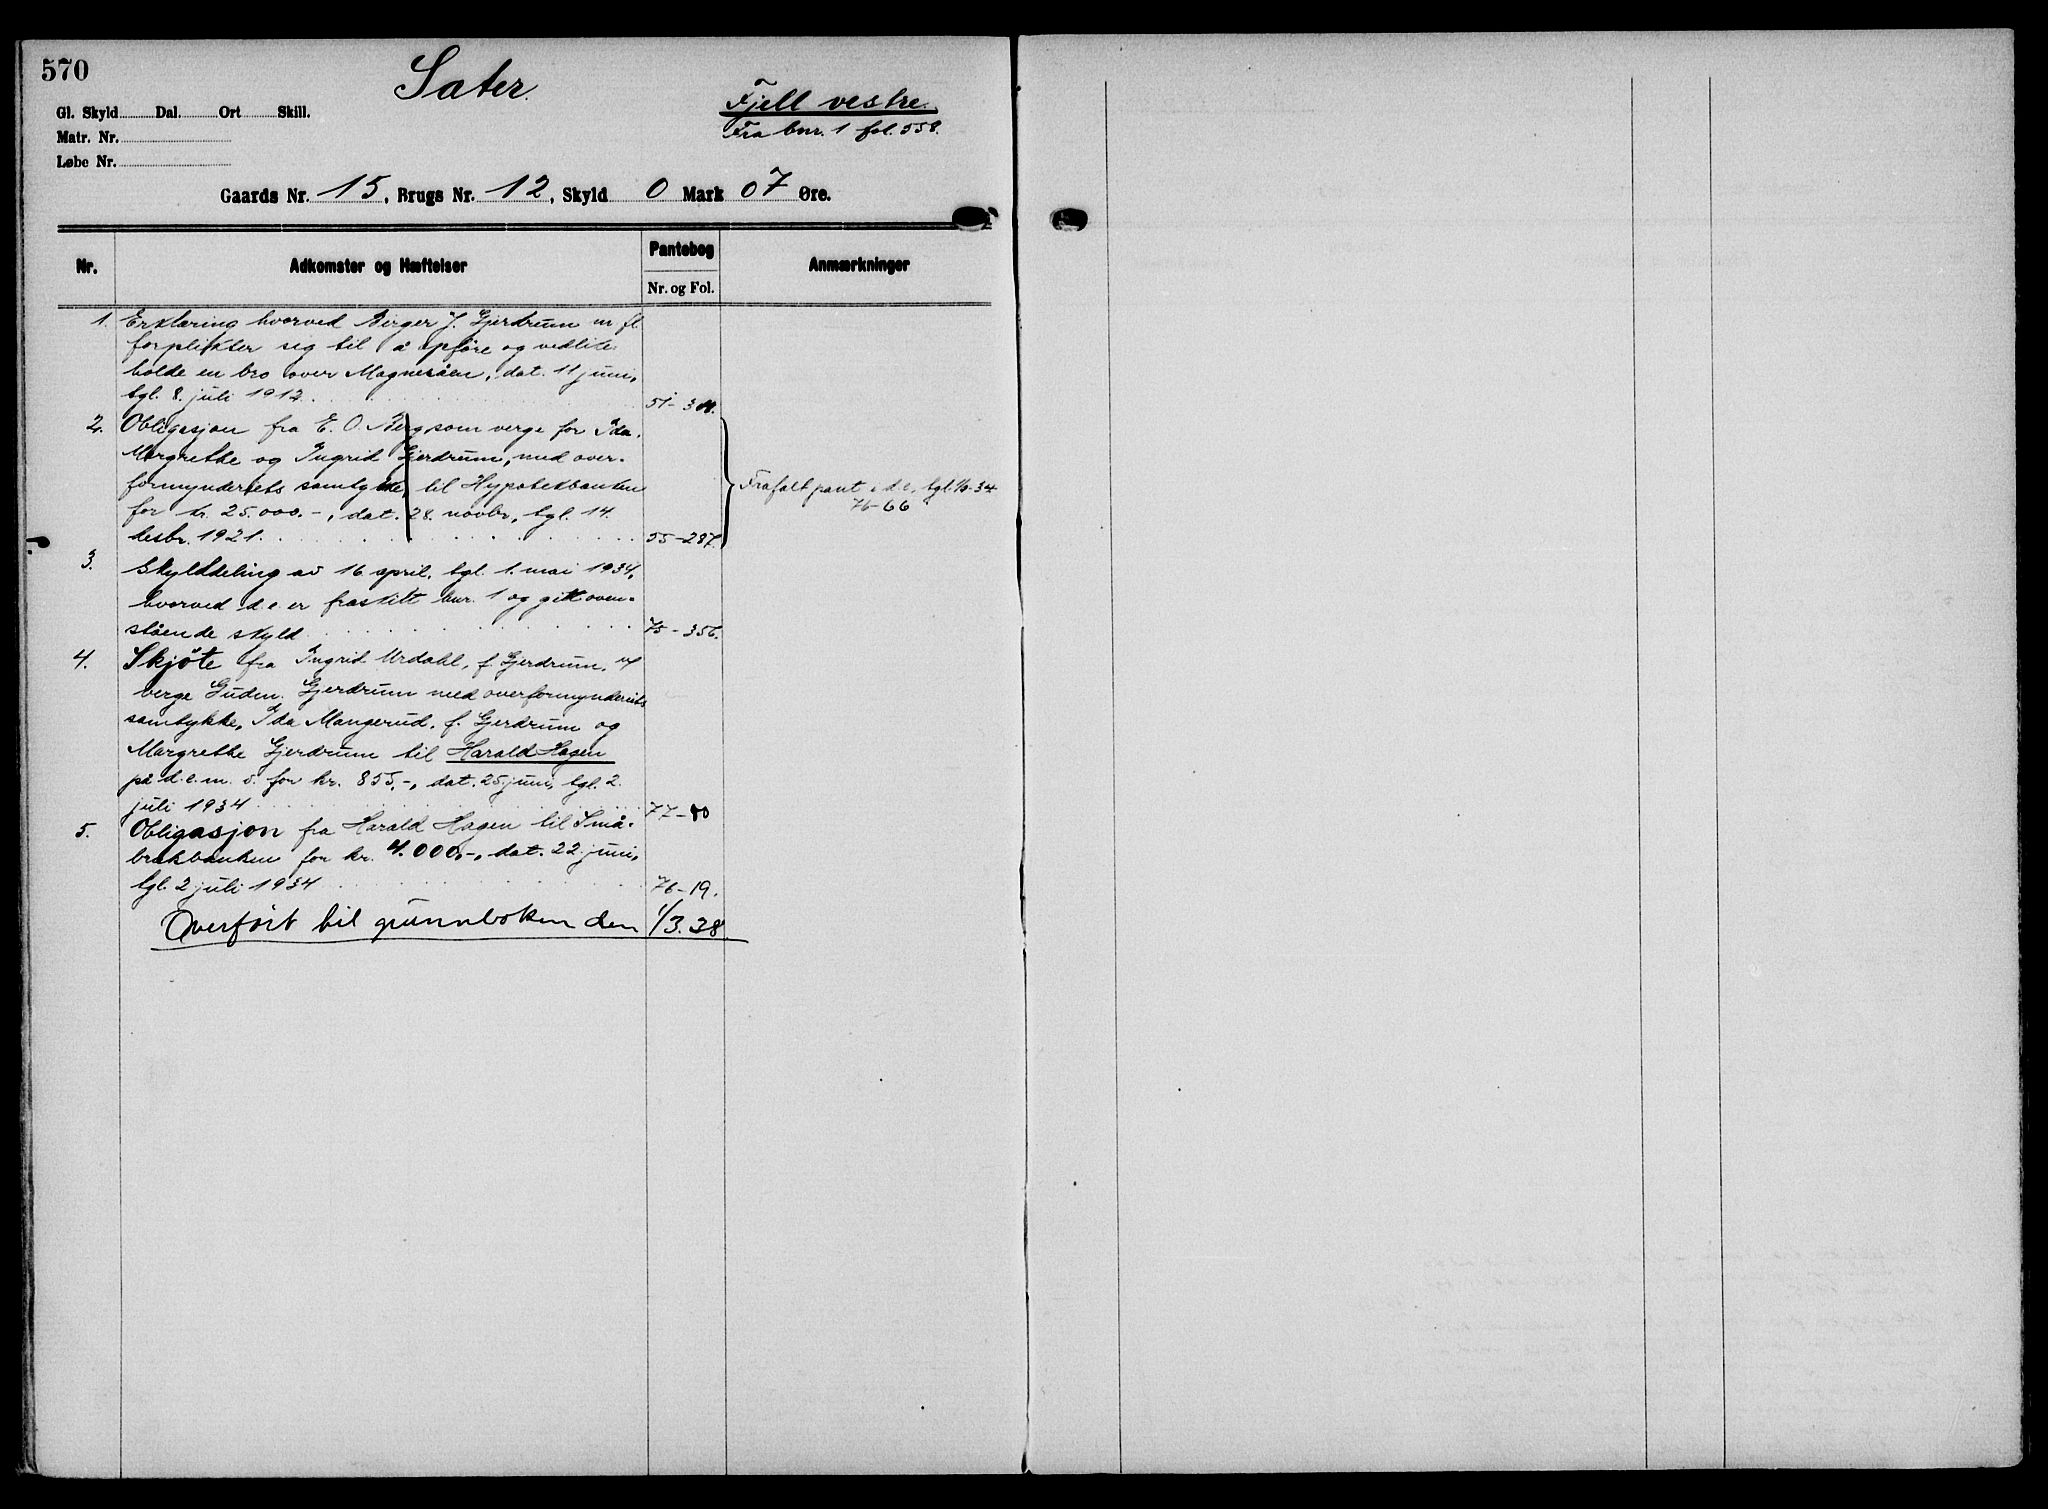 570
Sater.
Fjell vestre.
Fra bnr. 1 fol. 558.
Gl. Skyld Dal. Ort Skill.
Matr. Nr.
Løbe Nr.
Gaards Nr. 15, Brugs Nr. 12, Skyld 0 Mark 07 Øre.
Nr. Adkomster og Hæftelser Pantebog Nr. og Fol. Anmærkninger
1. Erklæring hvorved Birger J. Gjerdrum m fl
forplikter seg til å opføre og vedlite-
holde en bro over Magnesåen, dat. 11 juni,
tgl. 8. juli 1912. 51-
2. Obligasjon fra E. O. Berg som verge for Ida,
Margrethe og Ingrid Gjerdrum, med over-
formynderiets samtykke, til Hypotekbanken
for kr. 25.000.-, dat. 28. novbr, tgl. 14.
desbr. 1921. 55-287.
Frafalt pant i d.e. tgl. -34
76-66
3. Skylddeling av 16 april, tgl. 1. mai 1934,
hvorved d.e. er fraskilt bnr. 1 og gitt oven-
stående skyld 75-356.
4. Skjöte fra Ingrid Urdahl, f. Gjerdrum, m/
verge Gudm. Gjerdrum med overformynderiets
samtykke, Ida Mangerud, f. Gjerdrum og
Margrethe Gjerdrum til Harald Hagen
på d.e. m. v. for kr. 855,-, dat. 25 juni, tgl. 2.
juli 1934 77-
5. Obligasjon fra Harald Hagen til Små-
brukbanken for kr. 4.000,-, dat. 22 juni,
tgl. 2 juli 1934 76-19.
Overført til grunnboken den 1/3.38.